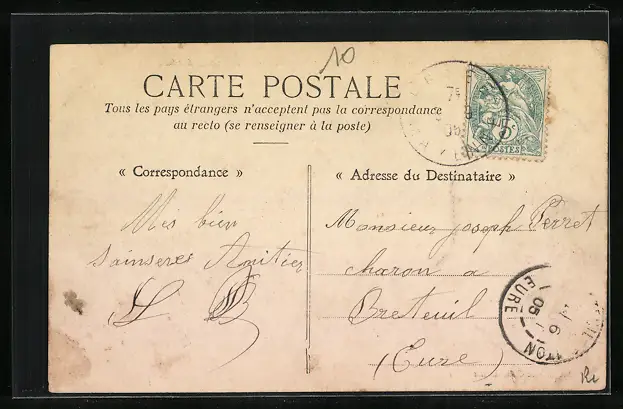 10
CARTE POSTALE
Tous les pays étrangers n'acceptent pas la correspondance
au recto (se renseigner à la poste)
« Correspondance »
« Adresse du Destinataire »
Mes bien
sainseres Amitier
L B
Monsieur joseph Perret
charon a
Breteuil
(Eure)
POSTES
7E
05
6
05
EURE